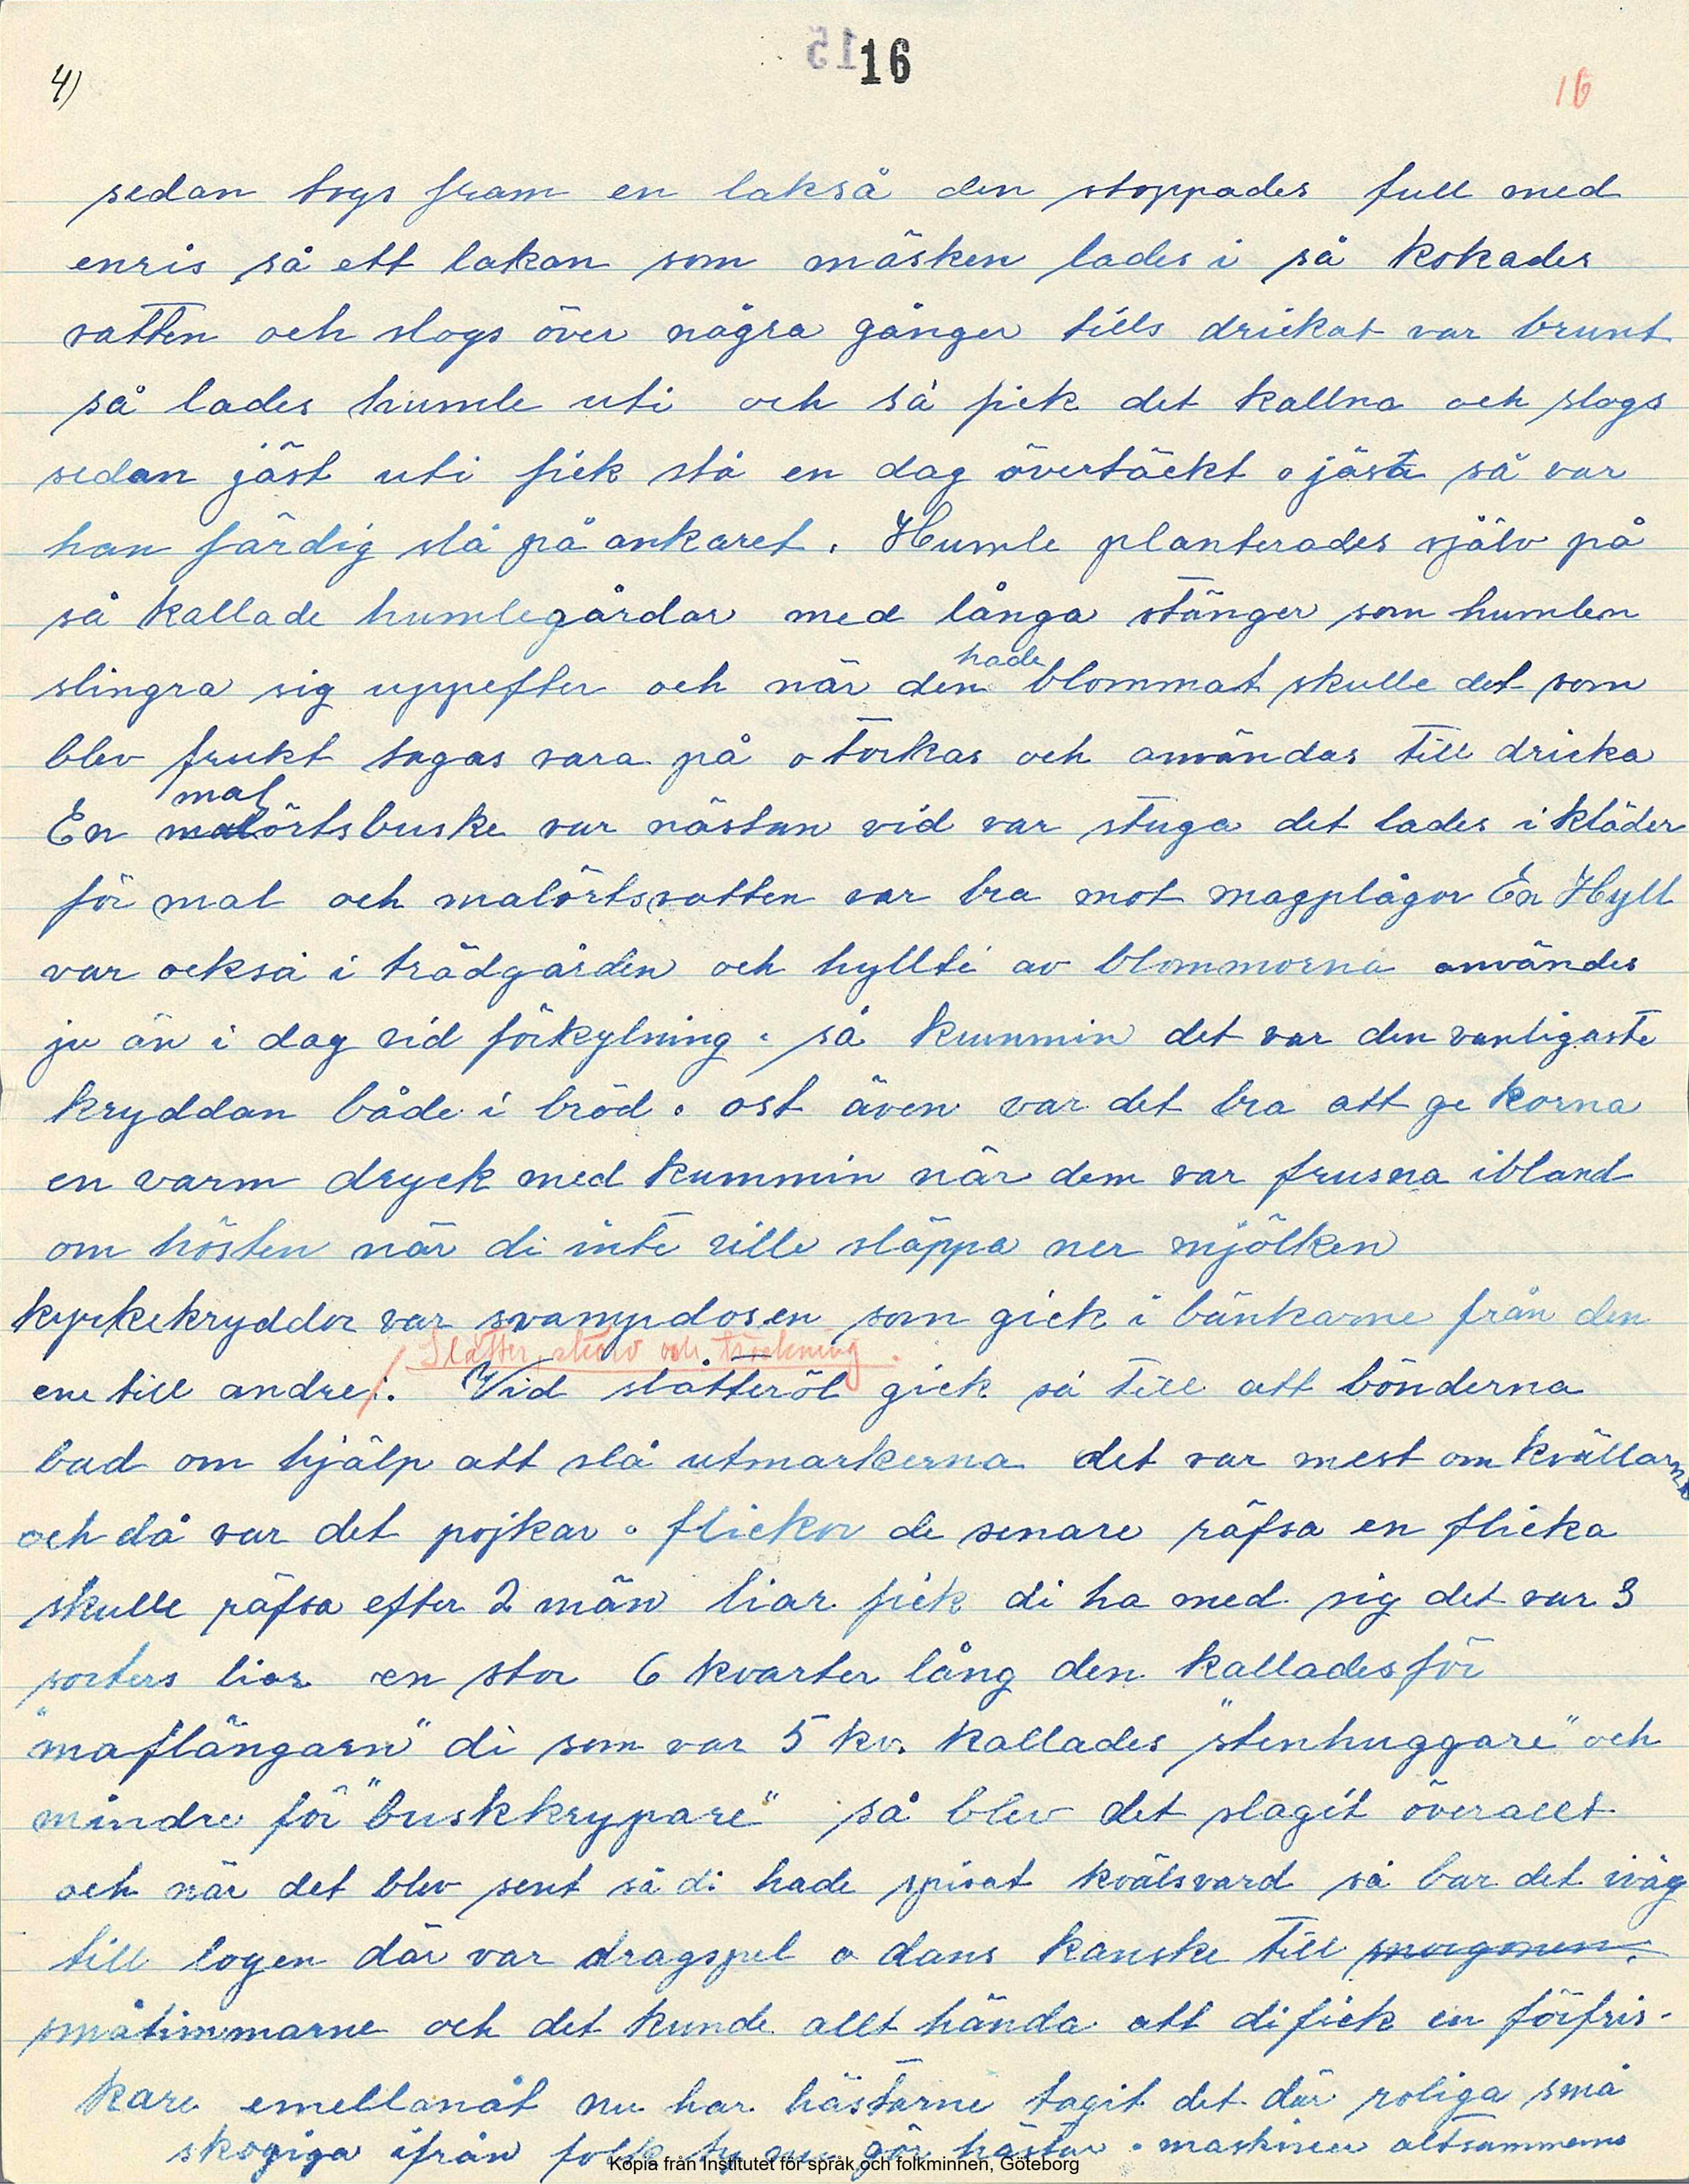 4)
15
16
16
sedan togs fram en lakså den stoppades full med
enris så ett lakan som mäsken lades i så kokades
vatten och slogs över några gånger tills drickat var brunt
så lades humle uti och så fick det kallna och slogs
sedan jäst uti fick stå en dag övertäckt o jästa så var
han färdig slå på ankaret. Humle planterades själv på
så kallade humlegårdar med långa stänger som humlen
slingra sig uppefter och när den hade blommat skulle det som
blev frukt tagas vara på o torkas och användas till dricka
En malörtsbuske var nästan vid var stuga det lades i kläder
för mal och malörtsvatten var bra mot magplågor En Hyll
var också i trädgården och hyllte av blommorna användes
ju än i dag vid förkylning. så kummin det var den vanligaste
kryddan både i bröd o ost även var det bra att ge korna
en varm dryck med kummin när dem var frusna ibland
om hösten när di inte ville släppa ner mjölken
kyrkekryddor var svampdosen som gick i bänkarne från den
Slåtter, skörd och tröskning.
ene till andre. Vid slåtteröl gick så till att bönderna
bad om hjälp att slå utmarkerna det var mest om kvällarna
och då var det pojkar o flickor de senare räfsa en flicka
skulle räfsa efter 2 män liar fick di ha med sig det var 3
sorters liar en stor 6 kvarter lång den kallades för
"maflängarn" di som var 5 kv. kallades "stenhuggare" och
mindre för "buskkrypare" så blev det slagit överallt
och när det blev sent så di hade spisat kvälsvard så bar det iväg
till logen där var dragspel o dans kanske till morgonen.
småtimmarne och det kunde allt hända att di fick en förfris-
kare emellanåt nu har hästarne tagit det där roliga små
skogiga ifrån folk ty nu gör hästar o maskiner altsammans
Kopia från Institutet för språk och folkminnen, Göteborg